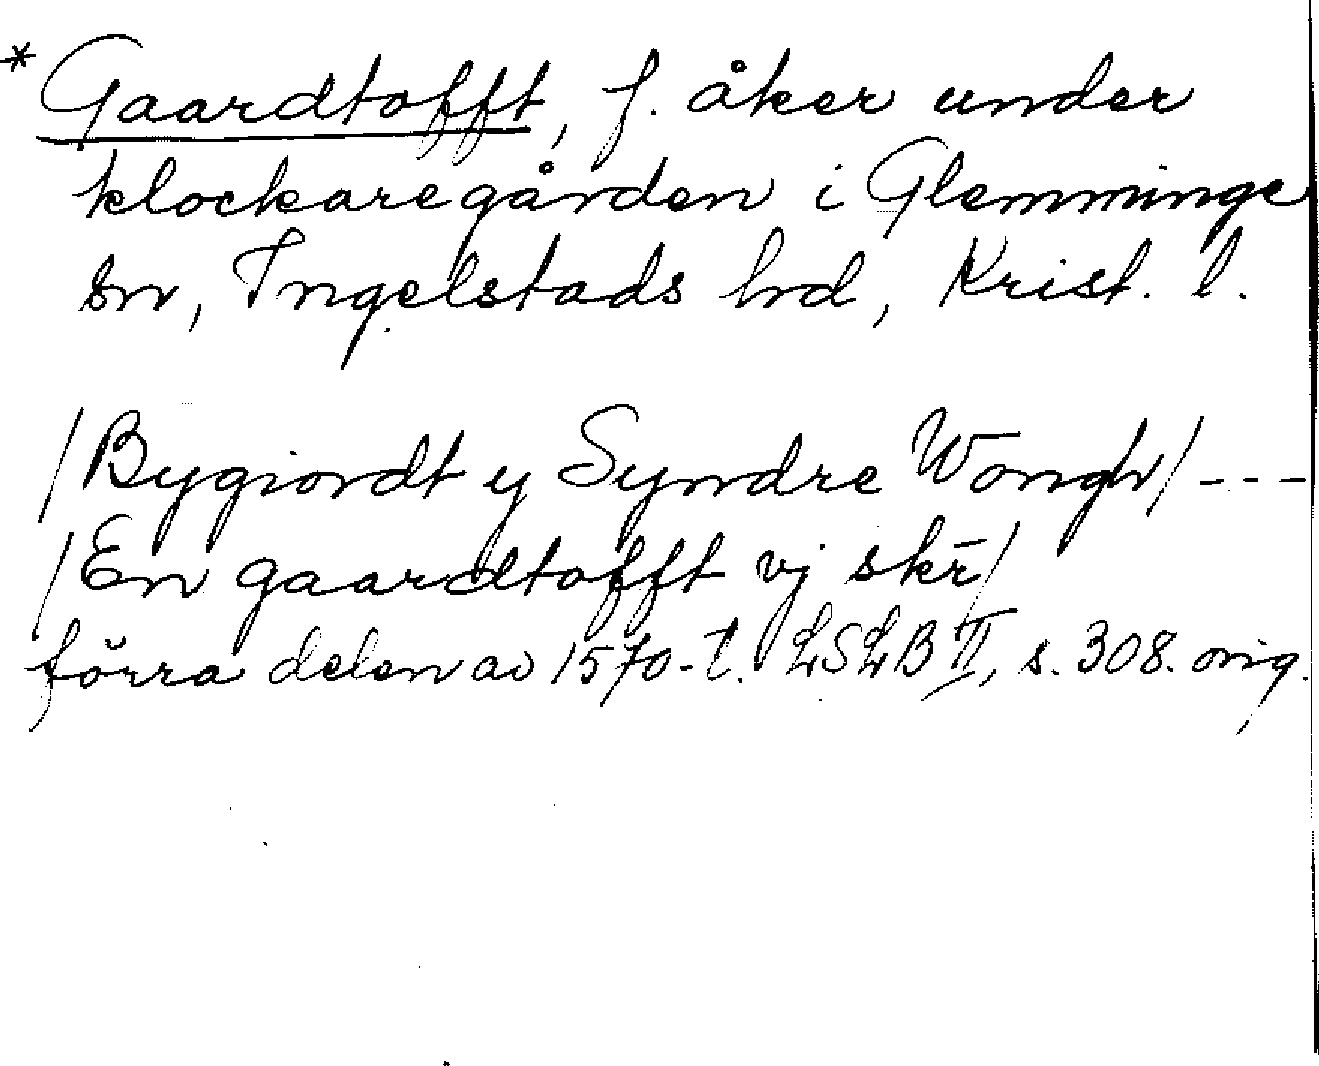 * Gaardtofft, f. åker under
klockaregården i Glemminge
sn, Ingelstads hrd, Krist. l.
/Bygiordt y Syndre Wongh/ ---
/En gaardtofft vj skr̄/
förra delen av 1570-t. LSLB II, s. 308. orig.